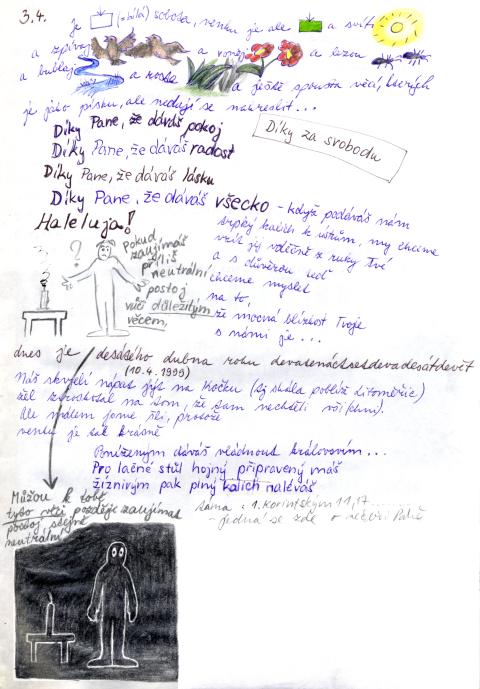 3.4.
je (=bílá) sobota, venku je ale a svítí
a zpívají a voněj a lezou
a bublaj a roste a ještě spousta věcí, kterých
je jako písku, ale nedají se nakreslit...
Díky Pane, že dáváš pokoj
Díky za svobodu
Díky Pane, že dáváš radost
Díky Pane, že dáváš lásku
Díky Pane, že dáváš všecko - když podáváš nám
Haleluja!
trpký kalich k ústům, my chceme
vzít jej vděčně z ruky Tvé
a s důvěrou teď
chceme myslet
na to,
že mocná blízkost Tvoje
s námi je...
?
Pokud
zaujímáš
příliš
neutrální
postoj
vůči důležitým
věcem,
dnes je desátého dubna roku devatenáctsetdevadesátdevět
(10.4.1999)
Náš skvělý nápad jít na Kočku (tj skála poblíž Litoměřic)
žel ztroskotal na tom, že tam nechtěli
Ale málem jsme šli, protože
venku je tak krásně
Poníženým dáváš vládnout královstvím...
Pro lačné stůl hojný připravený máš
žíznivým pak plný kalich naléváš
Můžou k tobě
tyto věci později zaujímat
postoj stejně
neutrální
téma: 1. Korintským 11,17...
- jedná se zde o večeři Páně